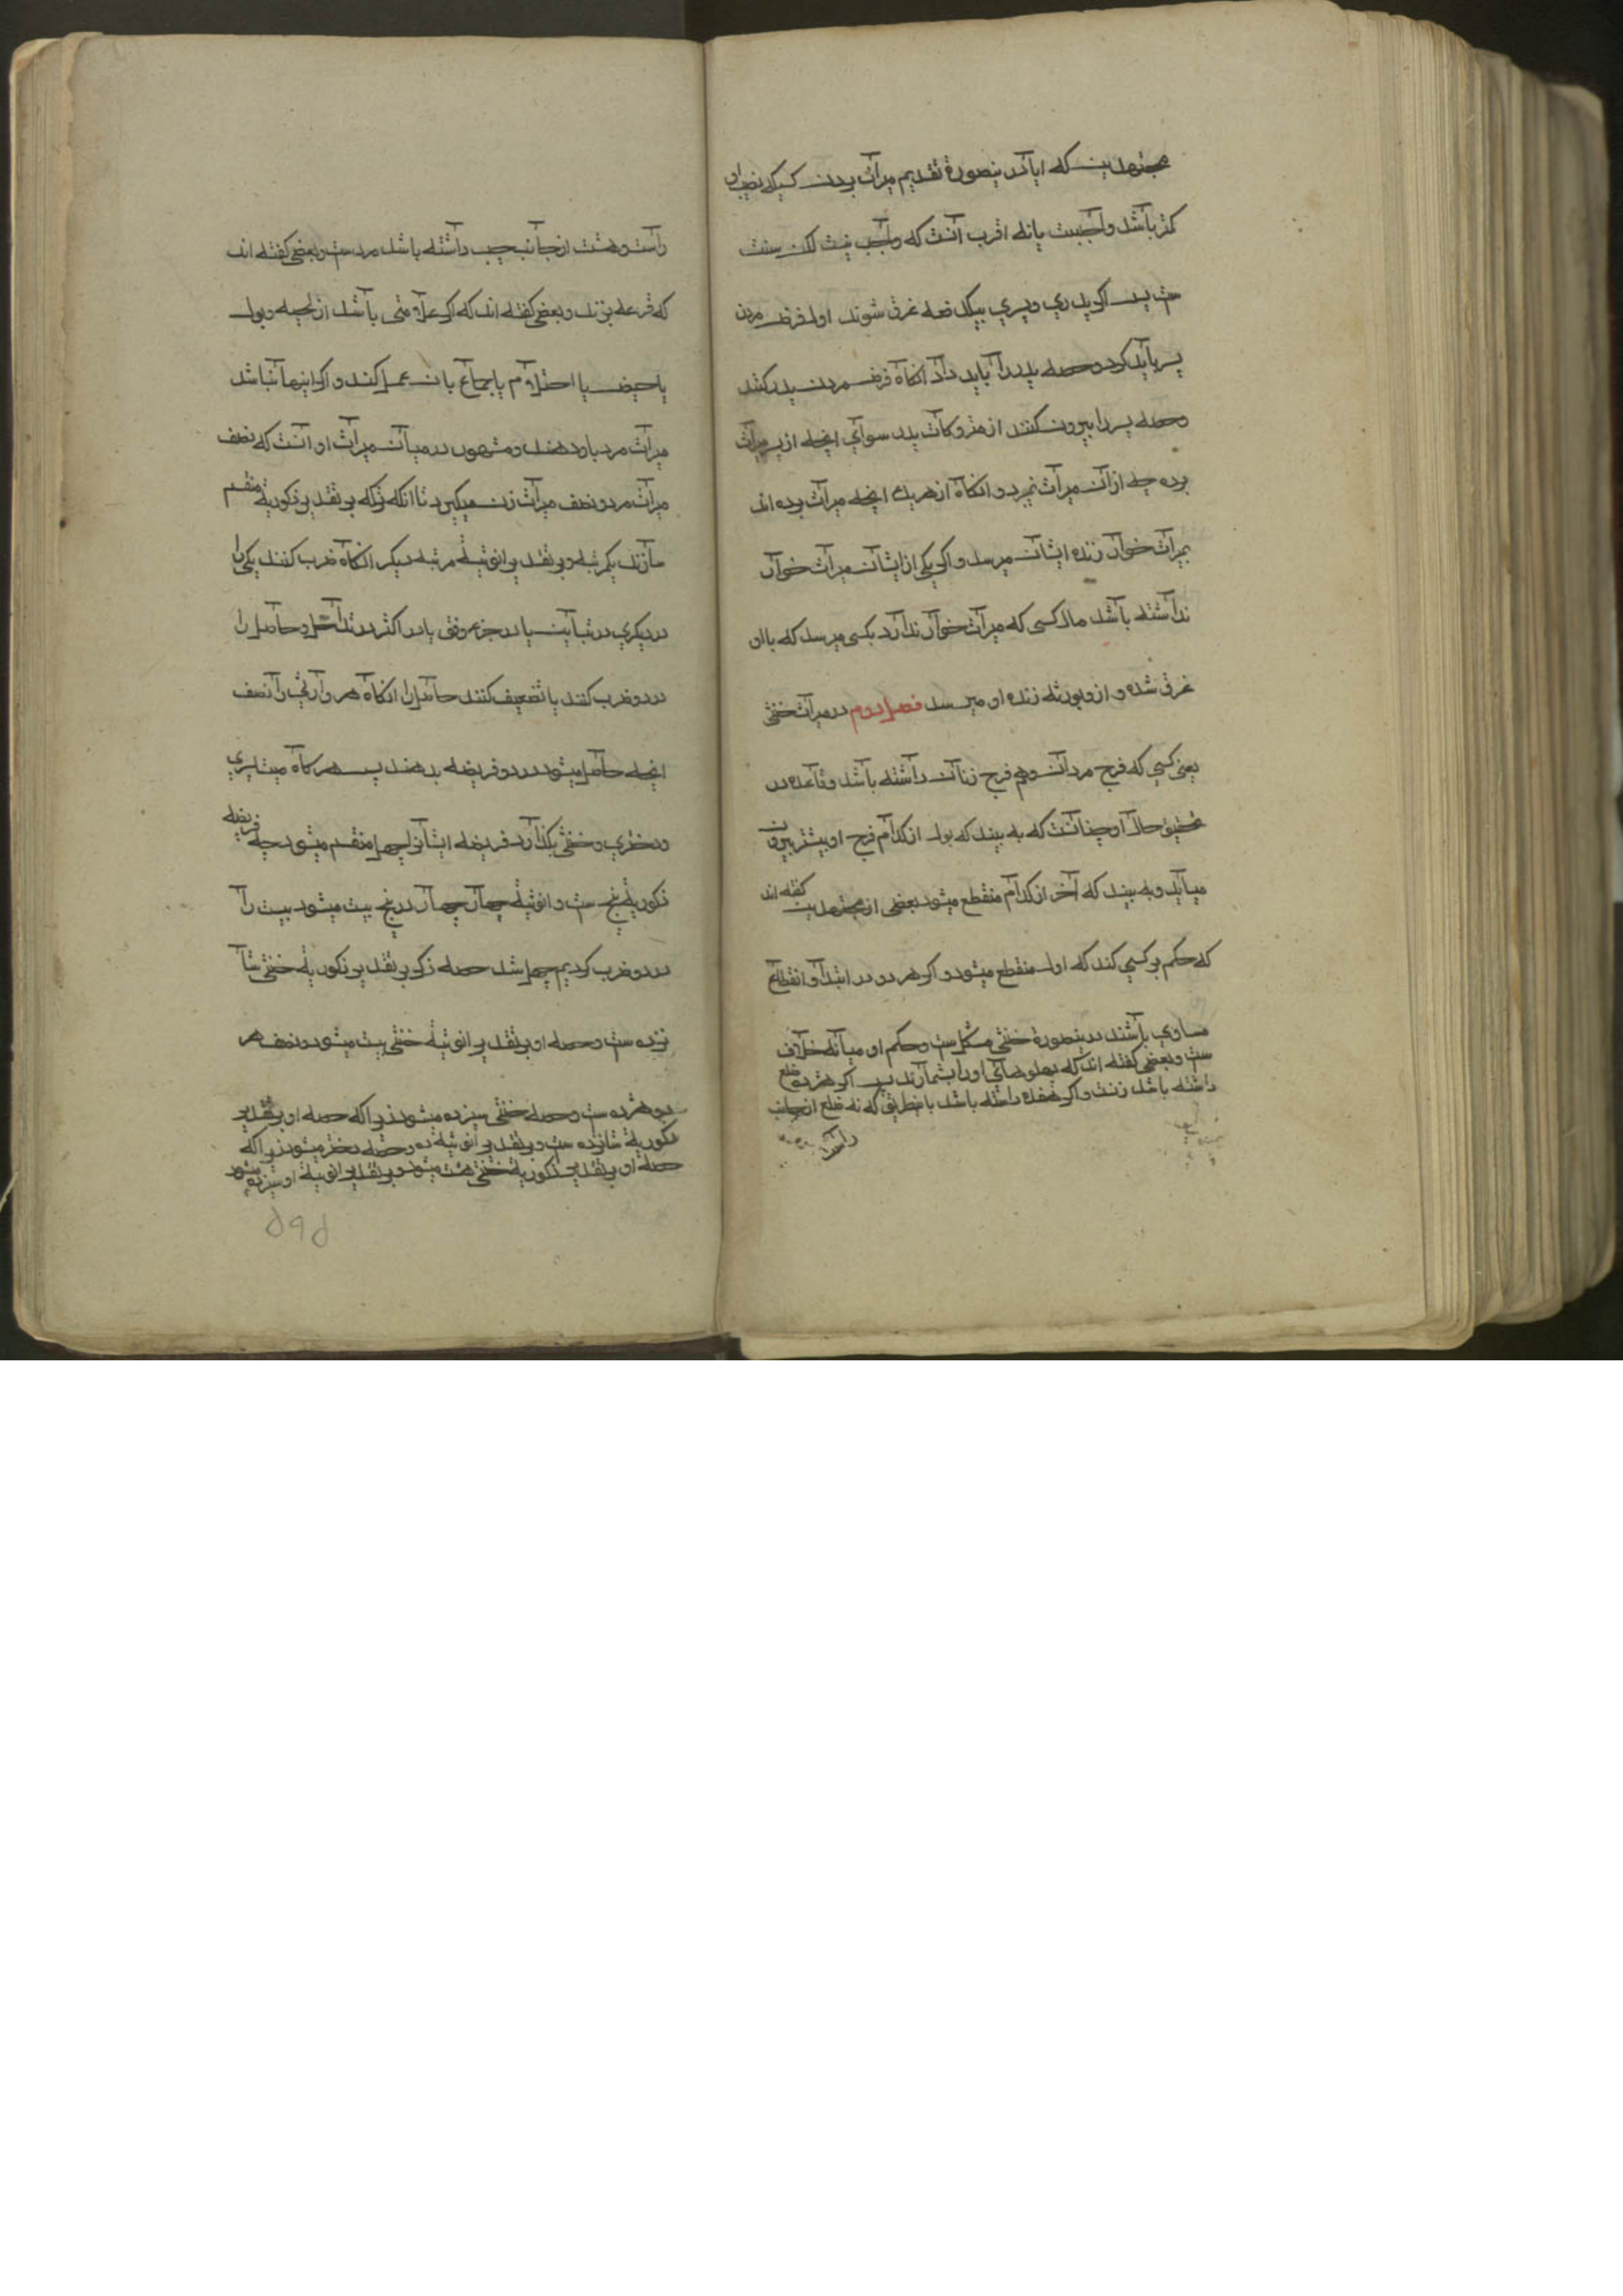 مجتهدین که ایا درینصورة تقدیم میراث بردن کسی که نصیب او
کمتر باشد واجبست یا نه اقرب آنست که واجب نیست لکن سنت
ست پس اگر پدری و پسری بیکدفعه غرق شوند اول فرض مردن
پسر باید کرد و حصه پدر را باید داد انگاه فرض مردن پدر کنند
و حصه پسر را بیرون کنند از متروکات پدر سوای انچه از پسر میراث
برده چه از آن میراث نمیبرد و انگاه از هر یک انچه میراث برده اند
بمیراث خوار زنده ایشان میرسد و اگر یکی از ایشان میراث خوار
نداشته باشد مال کسی که میراث خوار ندارد بکسی میرسد که با او
غرق شده و ازو بورثه زنده او میرسد فصل دوم در میراث خنثی
یعنی کسی که فرج مردان و هم فرج زنان داشته باشد و قاعده در
تحقیق حال او چنانست که به بیند که بول از کدام فرج او بیشتر بیرون
میآید و به بیند که آخر از کدام منقطع میشود بعضی از مجتهدین گفته اند
که حکم بر کسی کند که اول منقطع میشود و اگر هر دو در ابتدا و انقطاع
مساوی باشند درینصورة خنثی مشکل ست و حکم او میانه خلاف
ست و بعضی گفته اند که پهلوهای او را بشمارند پس اگر هژده ضلع
داشته باشد زنست و اگر هفده داشته باشد باینطریق که نه ضلع از جانب
راست
راست و هشت از جانب چپ داشته باشد مرد ست و بعضی گفته اند
که قرعه بزنند و بعضی گفته اند که اگر علامتی باشد از لحیه و بول
یا حیض یا احتلام یا جماع بان عمل کنند و اگر اینها نباشد
میراث مرد باو دهند و مشهور در میان میراث او آنست که نصف
میراث مرد و نصف میراث زن میگیرد تا انکه ترکه بر تقدیر ذکوریة منقسم
سازند یکمرتبه و بر تقدیر انوثیة مرتبه دیگر انگاه ضرب کنند یکی را
در دیگری در تباین یا در جزء وفق یا در اکثر در تداخل و حاصل را
در دو ضرب کنند یا تضعیف کنند حاصل را انگاه هر وارثی را نصف
انچه حاصل میشود در دو فریضه بدهند پس هرگاه میت پسری
و دختری و خنثی بگذارد فریضه ایشان از چهل منقسم میشود چه فریضه
ذکوریة پنج ست و انوثیة چهار چهار در پنج بیست میشود بیست را
در دو ضرب کردیم چهل شد حصه ذکر بر تقدیر ذکوریة خنثی شا
نزده ست و حصه او بر تقدیر انوثیة خنثی بیست میشود و نصف هر
دو هژده ست و حصه خنثی سیزده میشود زیرا که حصه او بر تقدیر
ذکوریة شانزده ست و بر تقدیر انوثیة ده و حصه دختر میشود زیرا که
حصه او بر تقدیر ذکوریة خنثی هشت میشود و بر تقدیر انوثیة او